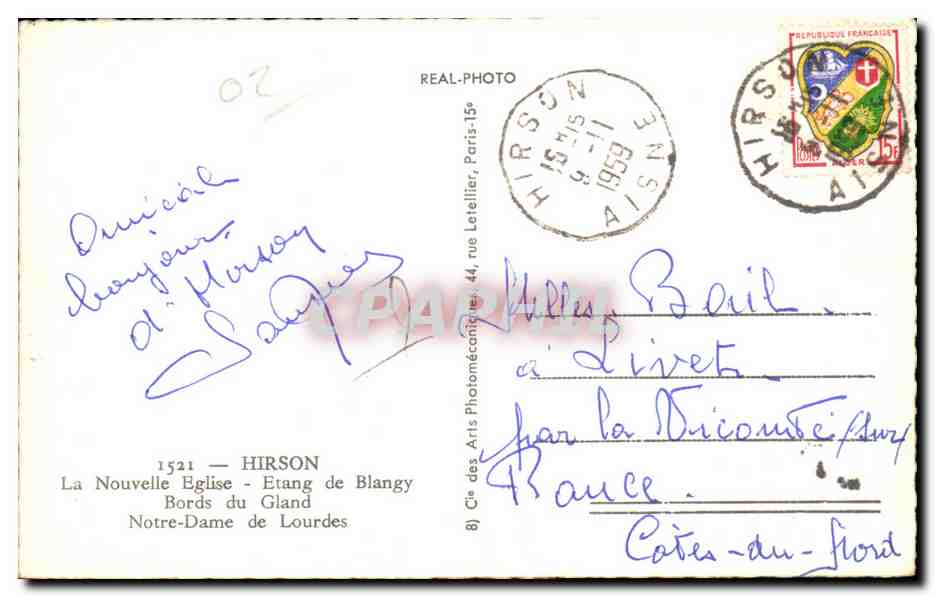 02
REAL-PHOTO
Amical
bonjour
d'Hirson
Jacques
1521 — HIRSON
La Nouvelle Eglise - Etang de Blangy
Bords du Gland
Notre-Dame de Lourdes
8) Cie des Arts Photomécaniques, 44, rue Letellier, Paris-15e
HIRSON
15H15
9-11
1959
AISNE
REPUBLIQUE FRANÇAISE
Postes
ALGER
15F
HIRSON
AISNE
CPARAMA
Mlles Bail.
à Livet.
par la Vicomté/sur/
Rance.
Côtes-du-Nord